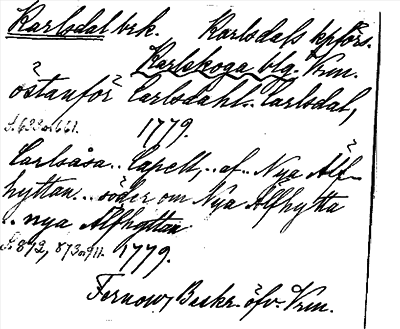 Karlsdal brk. Karlsdals kpförs.
Karlskoga blg. Vrm.
östanför Carlsdahl.. Carlsdal,
s. 633 o. 661. 1779.
Carlsåsa.. Capell,.. af.. Nya Älf-
hyttan.. söder om Nya Älfhytta
.. nya Älfhyttan
s. 872, 873 o. 911. 1779.
Fernow, Beskr. öfv. Vrm.